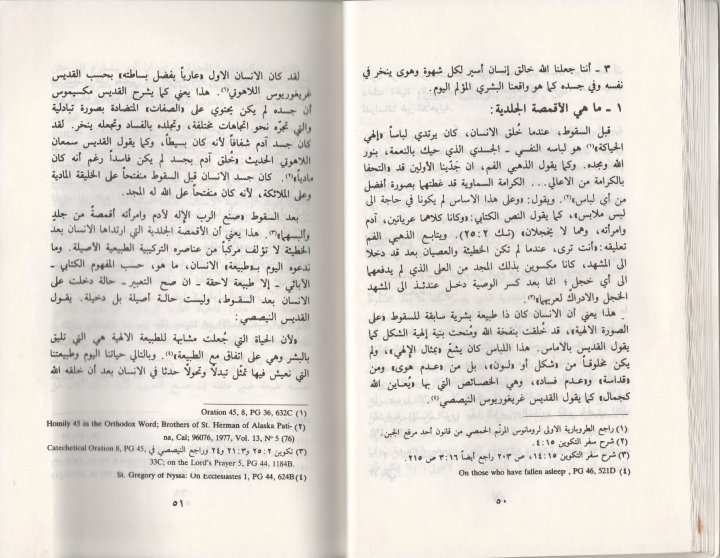 ٣ ـ أننا جعلنا الله خالق إنسان أسير لكل شهوة وهوى ينخر في
نفسه وفي جسده كما هو واقعنا البشري المؤلم اليوم.
١ ـ ما هي الأقمصة الجلدية:
قبل السقوط، عندما خُلق الانسان، كان يرتدي لباساً «إلهي
الحياكة»(١) هو لباسه النفسي ـ الجسدي الذي حيك بالنعمة، بنور
الله ومجده. وكما يقول الذهبي الفم، ان جَدّينا الأولين قد «التحفا
بالكرامة من الأعالي... الكرامة السماوية قد غطتهما بصورة أفضل
من أي لباس»(٢). ويقول: «وعلى هذا الاساس لم يكونا في حاجة الى
لبس ملابس»، كما يقول النص الكتابي: «وكانا كلاهما عريانين، آدم
وامرأته، وهما لا يخجلان» (تك ٢:٢٥). ويتابع الذهبي الفم
تعليقه: «أنت ترى، عندما لم تكن الخطيئة والعصيان بعد قد دخلا
الى المشهد، كانا مكسوين بذلك المجد من العلى الذي لم يدفعهما
الى أي خجل؛ انما بعد كسر الوصية دخل عندئذ الى المشهد
الخجل والادراك لعريهما»(٣).
هذا يعني أن الانسان كان ذا طبيعة بشرية سابقة للسقوط «على
الصورة الالهية»، قد خُلقت بنفخة الله ومُنحت بنية إلهية الشكل كما
يقول القديس بالاماس. هذا اللباس كان يشعّ «بمثال الإلهي»، ولم
يكن مخلوقـاً من «شكل أو لـون»، بل من «عدم هوى» ومن
«قداسة» و«عـدم فساد»، وهي الخصائص التي بها «يُعـاين الله
كجمال» كما يقول القديس غريغوريوس النيصصي(٤).
(١) راجع الطروبارية الأولى لرومانوس المرنّم الحمصي من قانون أحد مرفع الجبن.
(٢) شرح سفر التكوين ٤:١٥.
(٣) شرح سفر التكوين ١٤:١٥، ص ٢٠٣ راجع أيضاً ٣:١٦ ص ٢١٥.
(٤) On those who have fallen asleep , PG 46, 521D
٥٠
لقد كان الانسان الاول «عارياً بفضل بساطته» بحسب القديس
غريغوريوس اللاهوتي(١). هذا يعني كما يشرح القديس مكسيموس
أن جسده لم يكن يحتوي على «الصفات» المتضادة بصورة تبادلية
والتي تجرّه نحو اتجاهات مختلفة، وتجلده بالفساد وتجعله ينخر. لقد
كان جسد آدم شفافاً لأنه كان بسيطاً، وكما يقول القديس سمعان
اللاهوتي الحديث «خُلق آدم بجسد لم يكن فاسداً رغم أنه كان
مادياً»(٢). كان جسد الإنسان قبل السقوط منفتحاً على الخليقة المادية
وعلى الملائكة، لأنه كان منفتحاً على الله له المجد.
بعد السقوط «صنع الرب الإله لآدم وامرأته أقمصةً من جلدٍ
وألبسهما»(٣). هذا يعني أن الأقمصة الجلدية التي ارتداها الانسان بعد
الخطيئة لا تؤلف مركباً من عناصره التركيبية الطبيعية الأصيلة. وما
ندعوه اليوم بـ«طبيعة» الانسان، ما هو، حسب المفهوم الكتابي ـ
الآبائي ـ إلا طبيعة لاحقة ـ ان صح التعبير ـ حالة دخلت على
الانسان بعد السقـوط، وليست حالـة أصيلة بل دخيلة. يقـول
القديس النيصصي:
«لأن الحياة التي جُعلت مشابهة للطبيعة الالهية هي التي تليق
بالبشر وهي على اتفاق مع الطبيعة»(٤). وبالتالي حياتنا اليوم وطبيعتنا
التي نعيش فيها تمثّل تبدلاً وتحولاً حدثا في الانسان بعد أن خلقه الله
(١) Oration 45, 8, PG 36, 632C
(٢) Homily 45 in the Orthodox Word; Brothers of St. Herman of Alaska Pati-
na, Cal; 96076, 1977, Vol. 13, N° 5 (76)
(٣) تكوين ٢:٢٥ و٣:٢١ و٢٤ وراجع النيصصي في Catechetical Oration 8, PG 45,
33C; on the Lord's Prayer 5, PG 44, 1184B.
(٤) St. Gregory of Nyssa: On Ecclesiastes 1, PG 44, 624B
٥١